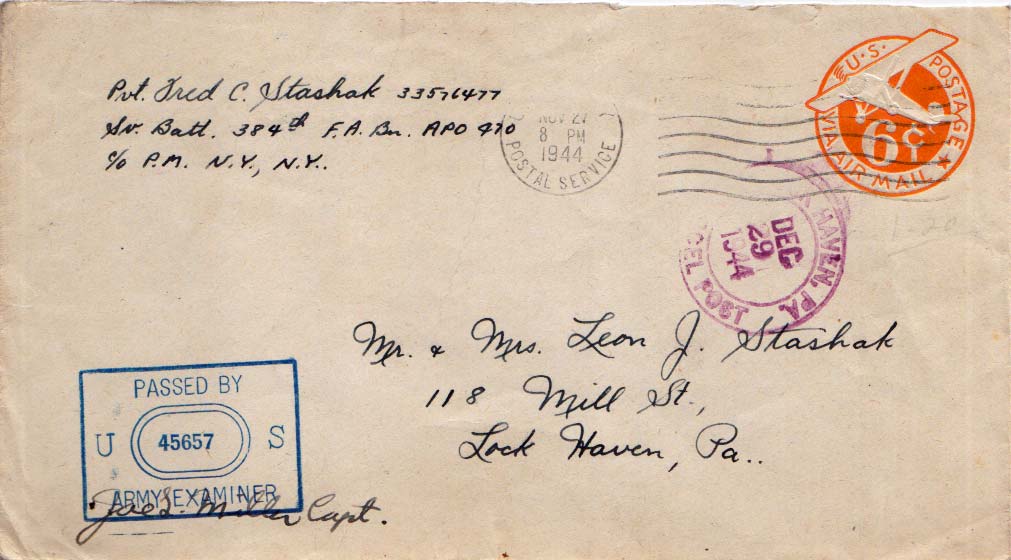 Pvt. Fred C. Stashak 33576477
Sv. Batt. 384th F.A. Bn. APO 470
c/o P.M. N.Y., N.Y..
NOV 27
8 PM
1944
POSTAL SERVICE
U.S. POSTAGE
6¢
VIA AIR MAIL
HAVEN, PA.
DEC
29
1944
CEL POST
Mr. & Mrs. Leon J. Stashak
118 Mill St.,
Lock Haven, Pa..
PASSED BY
U 45657 S
ARMY EXAMINER
Joe L. Miller Capt.